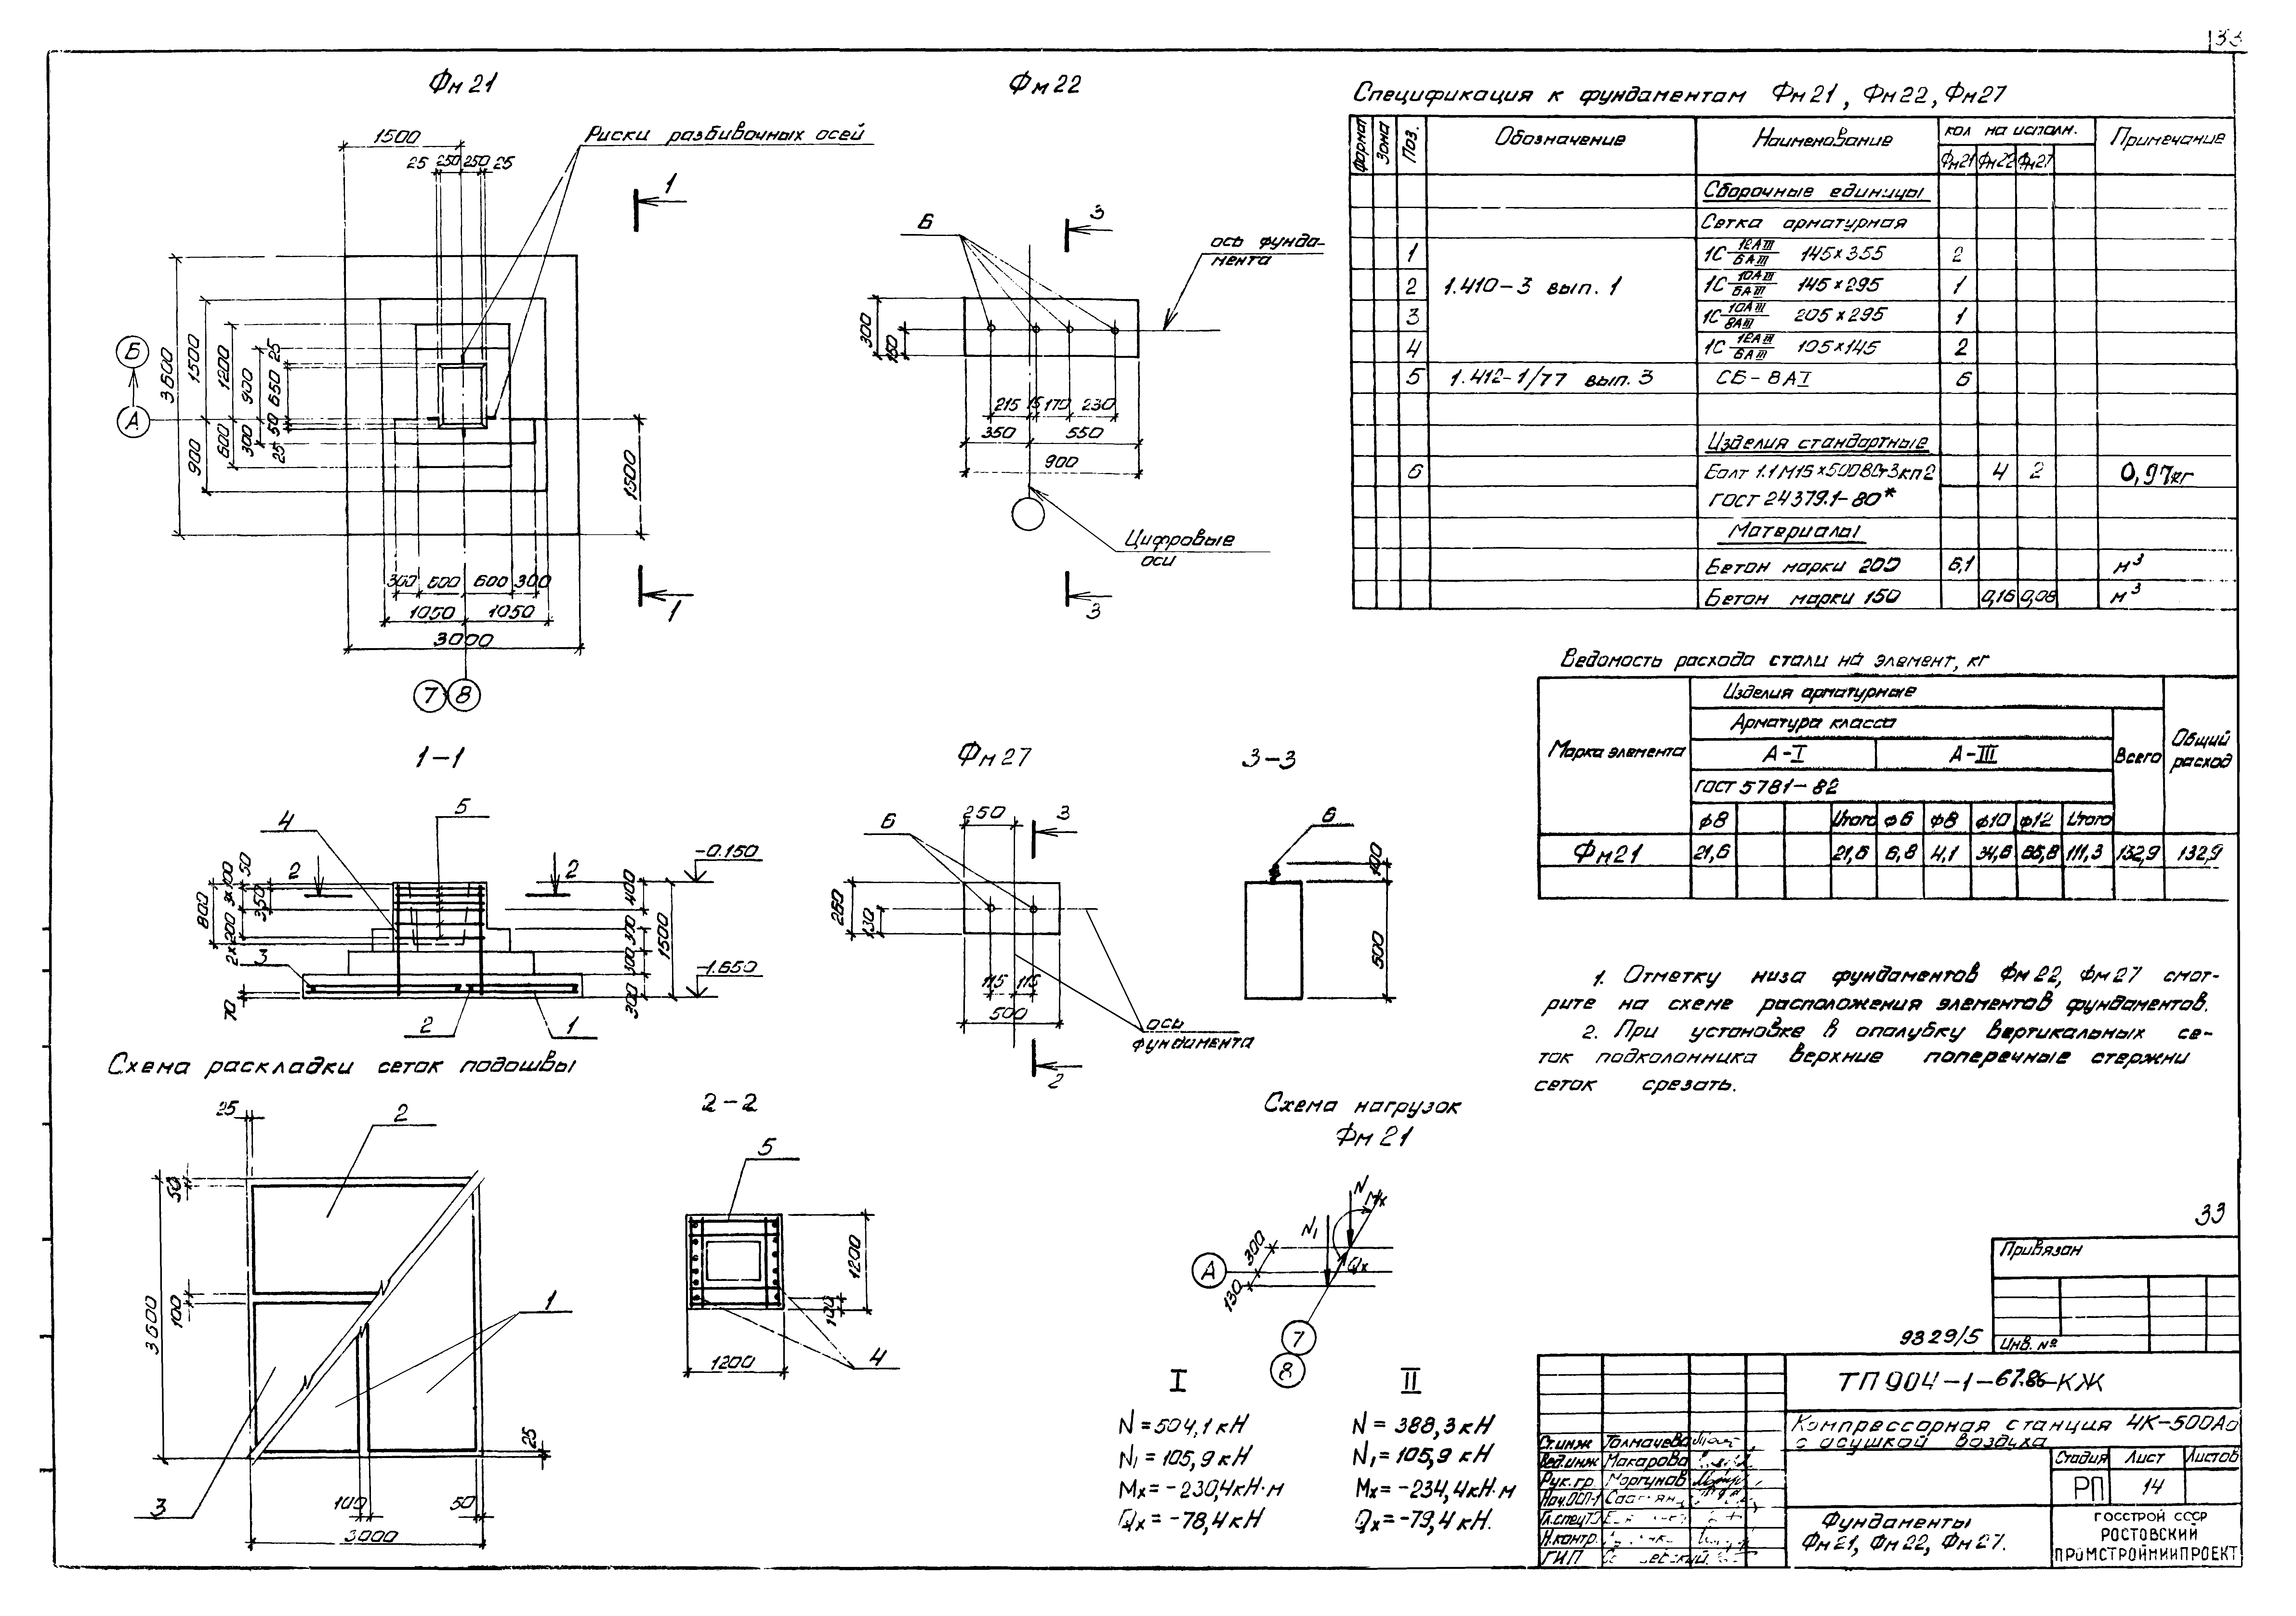 33
Фм21
Риски разбивочных осей
1500
25 250 250 25
1
3600
1500
1200
900
25
650
50
25
300
600
900
Б
А
1500
300 600 600 300
1050 1050
3000
1
7 8
Фм22
6
3
ось фунда-
мента
300
150
215 15 170 230
350 550
900
Цифровые
оси
3
Спецификация к фундаментам Фм21, Фм22, Фм27
Формат Зона Поз. Обозначение Наименование кол на исполн. Примечание
Фм21 Фм22 Фм27
Сборочные единицы
Сетка арматурная
1 1С 12АIII/6АIII 145×355 2
2 1.410-3 вып. 1 1С 10АIII/6АIII 145×295 1
3 1С 10АIII/8АIII 205×295 1
4 1С 12АIII/6АIII 105×145 2
5 1.412-1/77 вып. 3 СБ-8АI 6
Изделия стандартные
6 Болт 1.1М16×500ВСт3кп2 4 2 0,97кг
ГОСТ 24379.1-80*
Материалы
Бетон марки 200 6,1 м³
Бетон марки 150 0,16 0,08 м³
Ведомость расхода стали на элемент, кг
Марка элемента Изделия арматурные Общий расход
Арматура класса Всего
А-I А-III
ГОСТ 5781-82
ф8 Итого ф6 ф8 ф10 ф12 Итого
Фм21 21,6 21,6 6,8 4,1 34,6 65,8 111,3 132,9 132,9
1-1
4
5
2 2
-0.150
50
3×100
3,50
800
2×200
3
70
400
300
300
300
1500
-1.650
2 1
Фм27
250
6
3
260
130
115 115
500
ось
фундамента
2
3-3
6
100
500
1. Отметку низа фундаментов Фм22, Фм27 смот-
рите на схеме расположения элементов фундаментов.
2. При установке в опалубку вертикальных се-
ток подколонника верхние поперечные стержни
сеток срезать.
Схема раскладки сеток подошвы
25
2
50
100
3600
1
25
3
100 50
3000
2-2
5
1200
100
1200
4
Схема нагрузок
Фм 21
N
Мх
N1
Qх
300
130
А
7
8
I
N = 504,1 кН
N1 = 105,9 кН
Мх = -230,4 кН·м
Qх = -78,4 кН
II
N = 388,3 кН
N1 = 105,9 кН
Мх = -234,4 кН·м
Qх = -79,4 кН.
33
Привязан
Инв. №
9329/5
ТП 904-1-67.86-КЖ
Компрессорная станция 4К-500Ао
с осушкой воздуха
Ст.инж Толмачева
Вед.инж Макарова
Рук.гр. Моргунов
Нач.ОСП-1
Гл.спец
Н.контр.
ГИП
Стадия Лист Листов
РП 14
Фундаменты
Фм21, Фм22, Фм27.
ГОССТРОЙ СССР
РОСТОВСКИЙ
ПРОМСТРОЙНИИПРОЕКТ